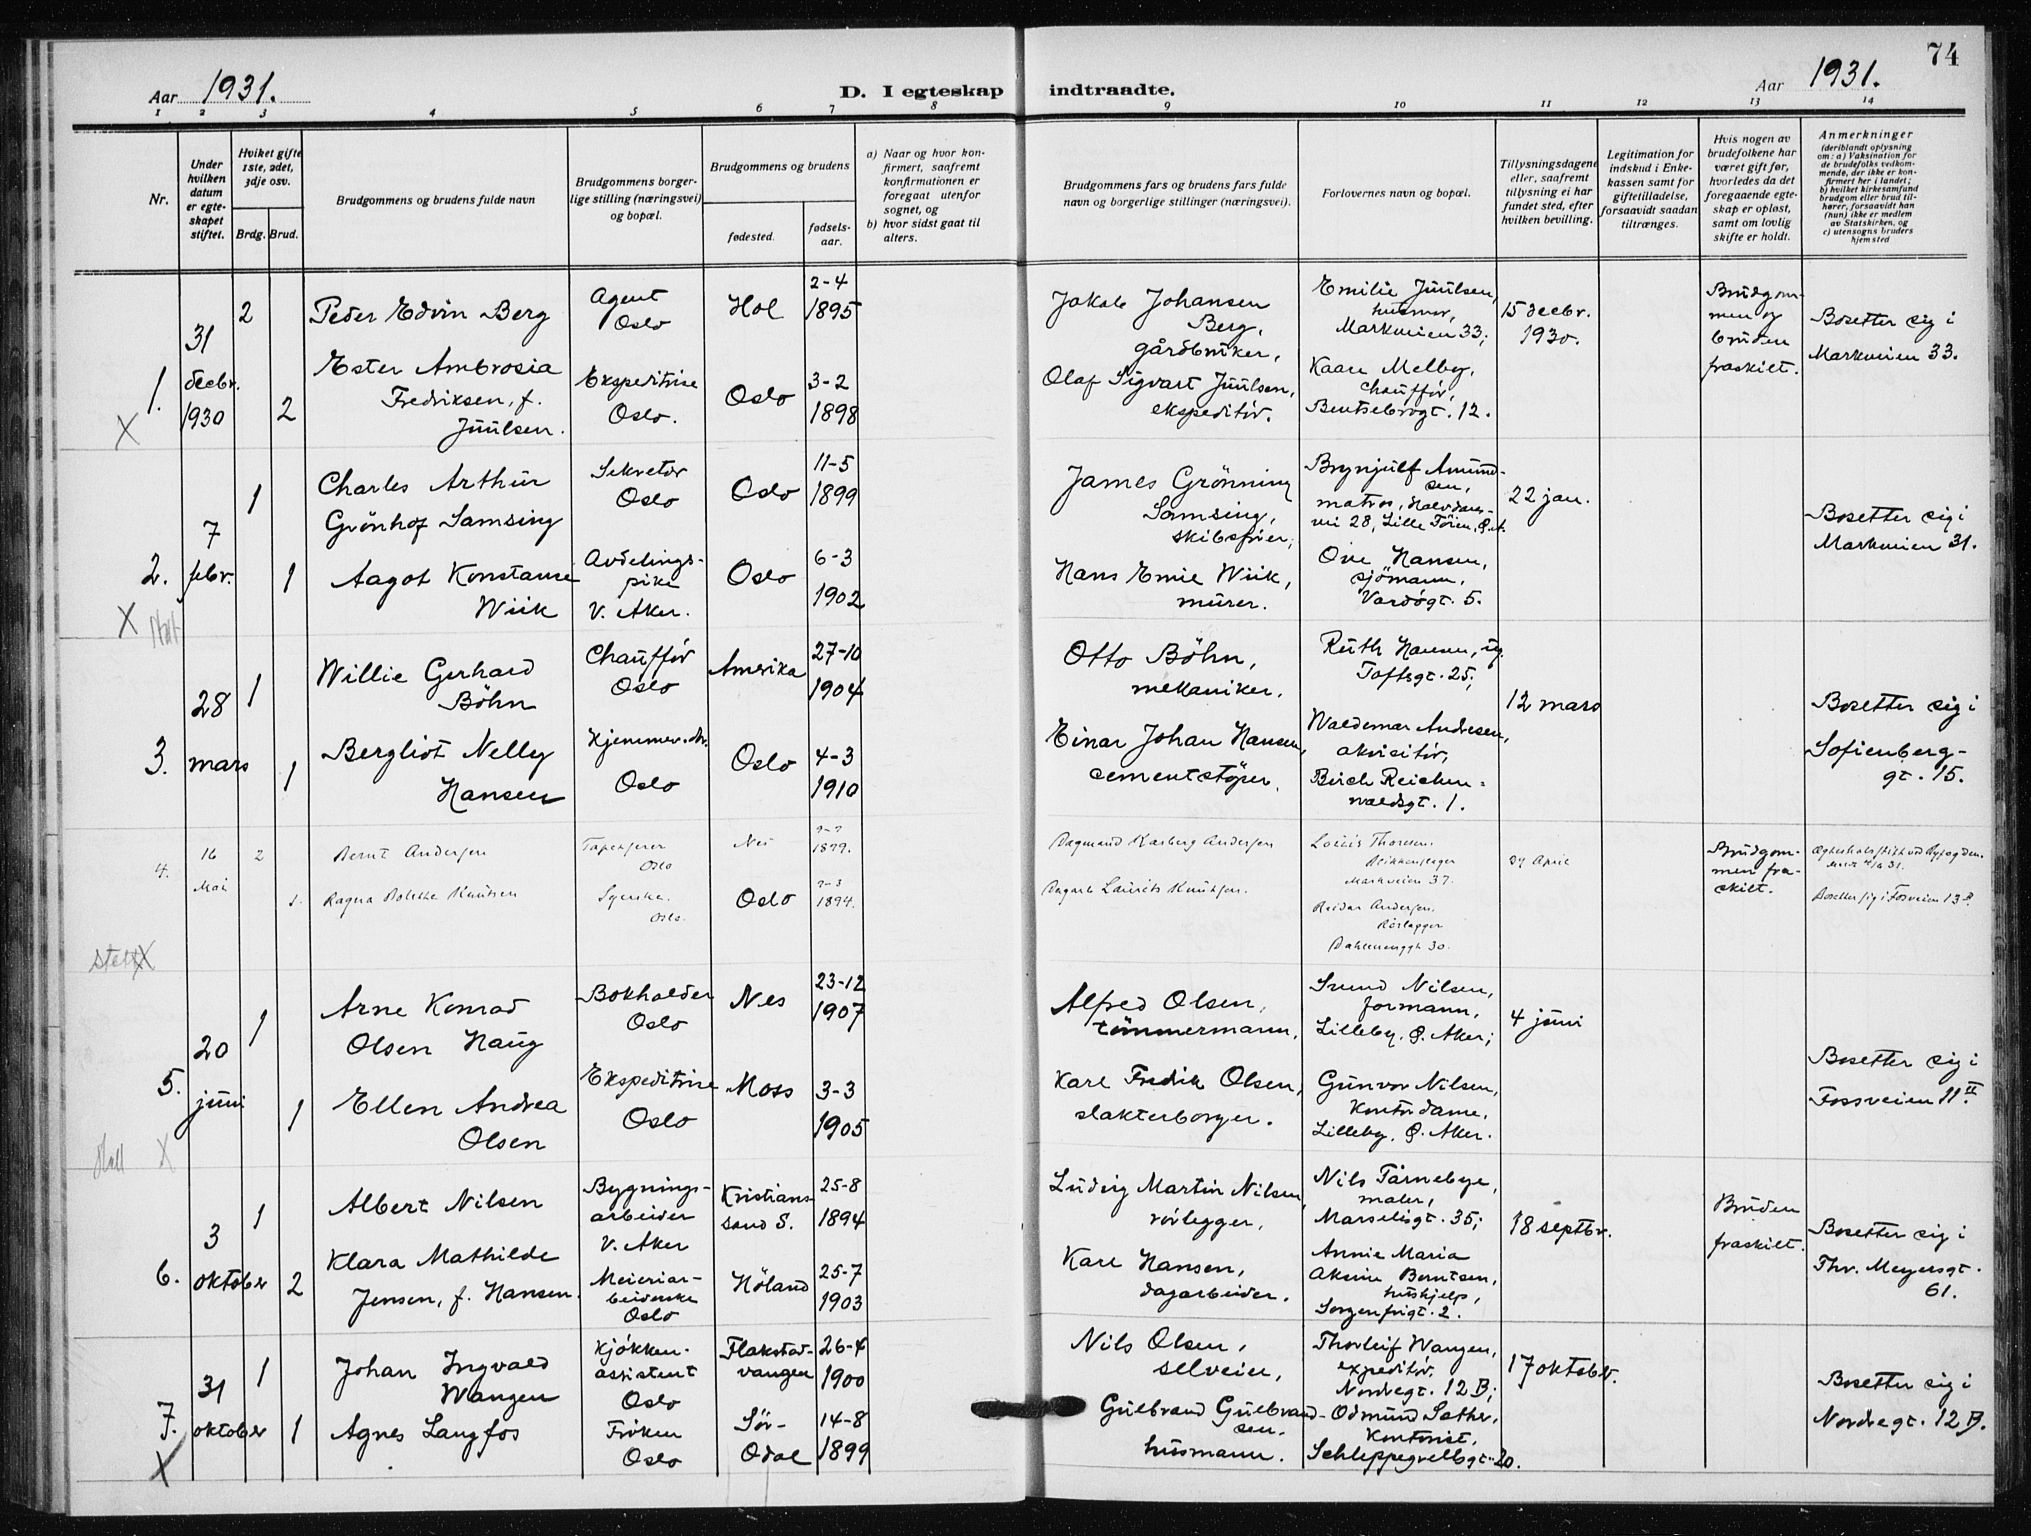 74
Aar 1931.
D. I egteskap indtraadte.
Aar 1931.
1 2 3 4 5 6 7 8 9 10 11 12 13 14
Nr.
Under hvilken datum er egteskapet stiftet.
Hvilket gifte 1ste, 2det, 3dje osv.
Brdg. Brud.
Brudgommens og brudens fulde navn
Brudgommens borgerlige stilling (næringsvei) og bopæl.
Brudgommens og brudens
fødested.
fødselsaar.
a) Naar og hvor konfirmert, saafremt konfirmationen er foregaat utenfor sognet, og
b) hvor sidst gaat til alters.
Brudgommens fars og brudens fars fulde navn og borgerlige stillinger (næringsvei).
Forlovernes navn og bopæl.
Tillysningsdagene eller, saafremt tillysning ei har fundet sted, efter hvilken bevilling.
Legitimation for indskud i Enkekassen samt for giftetilladelse, forsaavidt saadan tiltrænges.
Hvis nogen av brudefolkene har været gift før, hvorledes da det foregaaende egteskap er opløst, samt om lovlig skifte er holdt.
Anmerkninger
(deriblandt oplysning om: a) Vaksination for de brudefolks vedkommende, der ikke er konfirmert her i landet;
b) hvilket kirkesamfund brudgom eller brud tilhører, forsaavidt han (hun) ikke er medlem av Statskirken, og
c) utensogns bruders hjemsted
1. X
31 decbr. 1930
2
Peder Edvin Berg
Agent Oslo
Hol
2-4 1895
Jakob Johansen Berg, gårdbruker,
Emilie Juulsen, husmor, Markveien 33;
15 decbr. 1930.
Brudgommen og bruden fraskilt.
Bosetter sig i Markveien 33.
2
Ester Ambrosia Fredriksen, f. Juulsen.
Ekspeditrise Oslo.
Oslo
3-2 1898
Olaf Sigvart Juulsen, ekspeditør.
Kaare Melby, chauffør, Bentsebrogt. 12.
2. X
7 febr.
1
Charles Arthur Grönhof Samsing
Sekretær Oslo
Oslo
11-5 1899
James Grönning Samsing, skibsfører,
Brynjulf Amundsen, matros, Halvdansvei 28, Lille Töien, Ö. A.
22 jan.
Bosetter sig i Markveien 31.
1
Aagot Konstanse Wiik
Avdelingspike V. Aker.
Oslo
6-3 1902
Hans Emil Wiik, murer.
Ove Hansen, sjömann, Vardøgt. 5.
3.
28 mars
1
Willie Gerhard Böhn
Chauffør Oslo
Amerika
27-10 1904
Otto Böhn, mekaniker,
Ruth Hansen, ug. Toftsgt. 25;
12 mars
Bosetter sig i Sofienberggt. 15.
1
Bergliot Nelly Hansen
Hjemmev. dtr. Oslo
Oslo
4-3 1910
Einar Johan Hansen, cementstøper.
Waldemar Andresen, akvisitør, Birch Reichenwaldsgt. 1.
4.
16 Mai
2
Bernt Andersen
Tapetserer Oslo
Nes
1879.
Dagmand Karsberg Andersen
Louis Thoresen. Blikkenslager Markveien 37.
24 April
Brudgommen fraskilt.
1.
Ragna Bolette Knutsen
Syerske. Oslo.
Oslo
1894.
Dagarb Laurits Knutsen.
Reidar Andersen. Rörlægger Dahlenenggt 30.
Bosetter sig i Fosveien 13 B.
X
5.
20 juni
1
Arne Konrad Olsen Haug
Bokholder Oslo
Nes
23-12 1907
Alfred Olsen, tömmermann.
Svend Nilsen, formann, Lilleby, Ö. Aker;
4 juni
Bosetter sig i Fossveien 11 II.
1
Ellen Andrea Olsen
Ekspeditrise Oslo
Moss
3-3 1905
Karl Fredrik Olsen, slakterborger.
Gunvor Nilsen, kontordame, Lilleby, Ö. Aker.
X
6.
3 oktober
1
Albert Nilsen
Bygningsarbeider V. Aker
Kristianssand S.
25-8 1894
Ludvig Martin Nilsen, rörlegger,
Nils Tärnebye, maler, Marselisgt. 35;
18 septbr.
Bruden fraskilt.
Bosetter sig i Thv. Meyersgt. 61.
2
Klara Mathilde Jensen, f. Hansen.
Meieriarbeiderske Oslo
Höland
25-7 1903
Karl Hansen, dagarbeider.
Annie Maria Aksine Berntsen, hushjelp, Sorgenfrigt. 2.
7. X
31 oktober
1
Johan Ingvald Wangen
Kjökkenassistent Oslo
Flakstadvangen
26-4 1900
Nils Olsen, selveier,
Thorleif Wangen, expeditør, Nordregt. 12 B;
17 oktober.
Bosetter sig i Nordregt. 12 B.
1
Agnes Langfos
Frøken Oslo
Sör-Odal
14-8 1899
Gulbrand Gulbrandsen, husmann.
Odmund Sæther, kontorist, Schleppegrellsgt. 20.